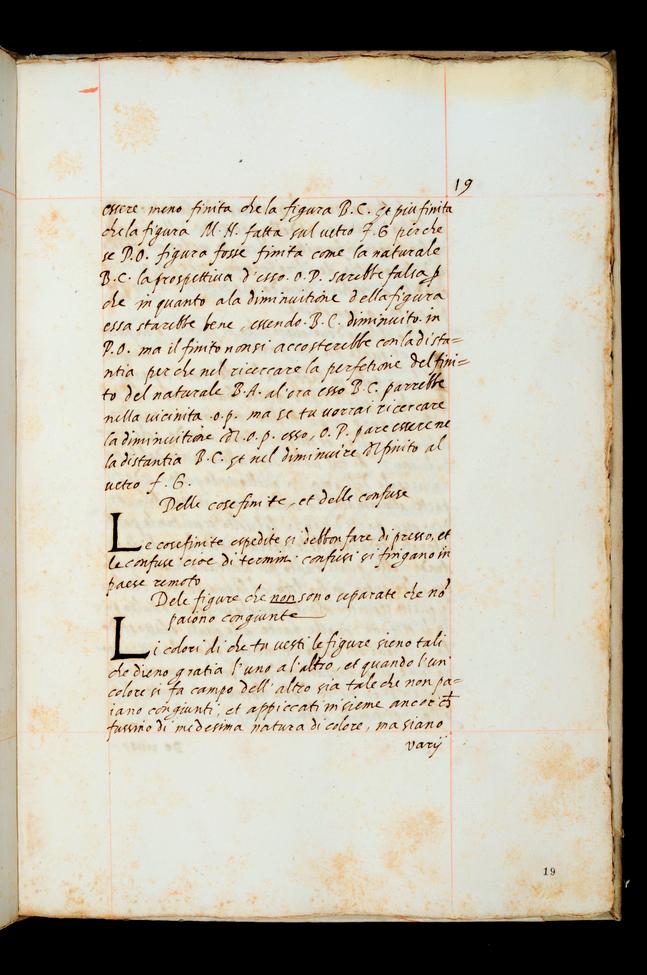 19
essere meno finita che la figura B.C. et piu finita
che la figura M.N. fatta sul vetro f.G perche
se P.O. figura fosse finita come la naturale
B.C. la prospettiva d'esso .O.P. sarebbe falsa p
che in quanto ala diminuitione della figura
essa starebbe bene, essendo .B.C. diminuito in
P.O. ma il finito non si accosterebbe con la dista=
ntia perche nel riceccare la perfetione del fini=
to del naturale B.A. al'ora esso B.C. parrebbe
nella vicinita .o.p. ma se tu vorrai ricercare
la diminuitione del .o.p. esso, O.P. pare essere ne
la distantia B.C. et nel diminuire del finito al
vetro f.G.
Delle cose finite, et delle confuse
Le cose finite espedite si debbon fare di presso, et
le confuse cioe di termini confusi si fingano in
paese remoto
Dele figure che non sono separate che no
paiono congiunte
Li colori di che tu vesti le figure sieno tali
che dieno gratia l'uno a l'altro, et quando l'un
colore si fa campo dell'altro sia tale che non pa=
iano congiunti, et appiccati insieme ancor ch
fussino di medesima natura di colore, ma siano
varij
19